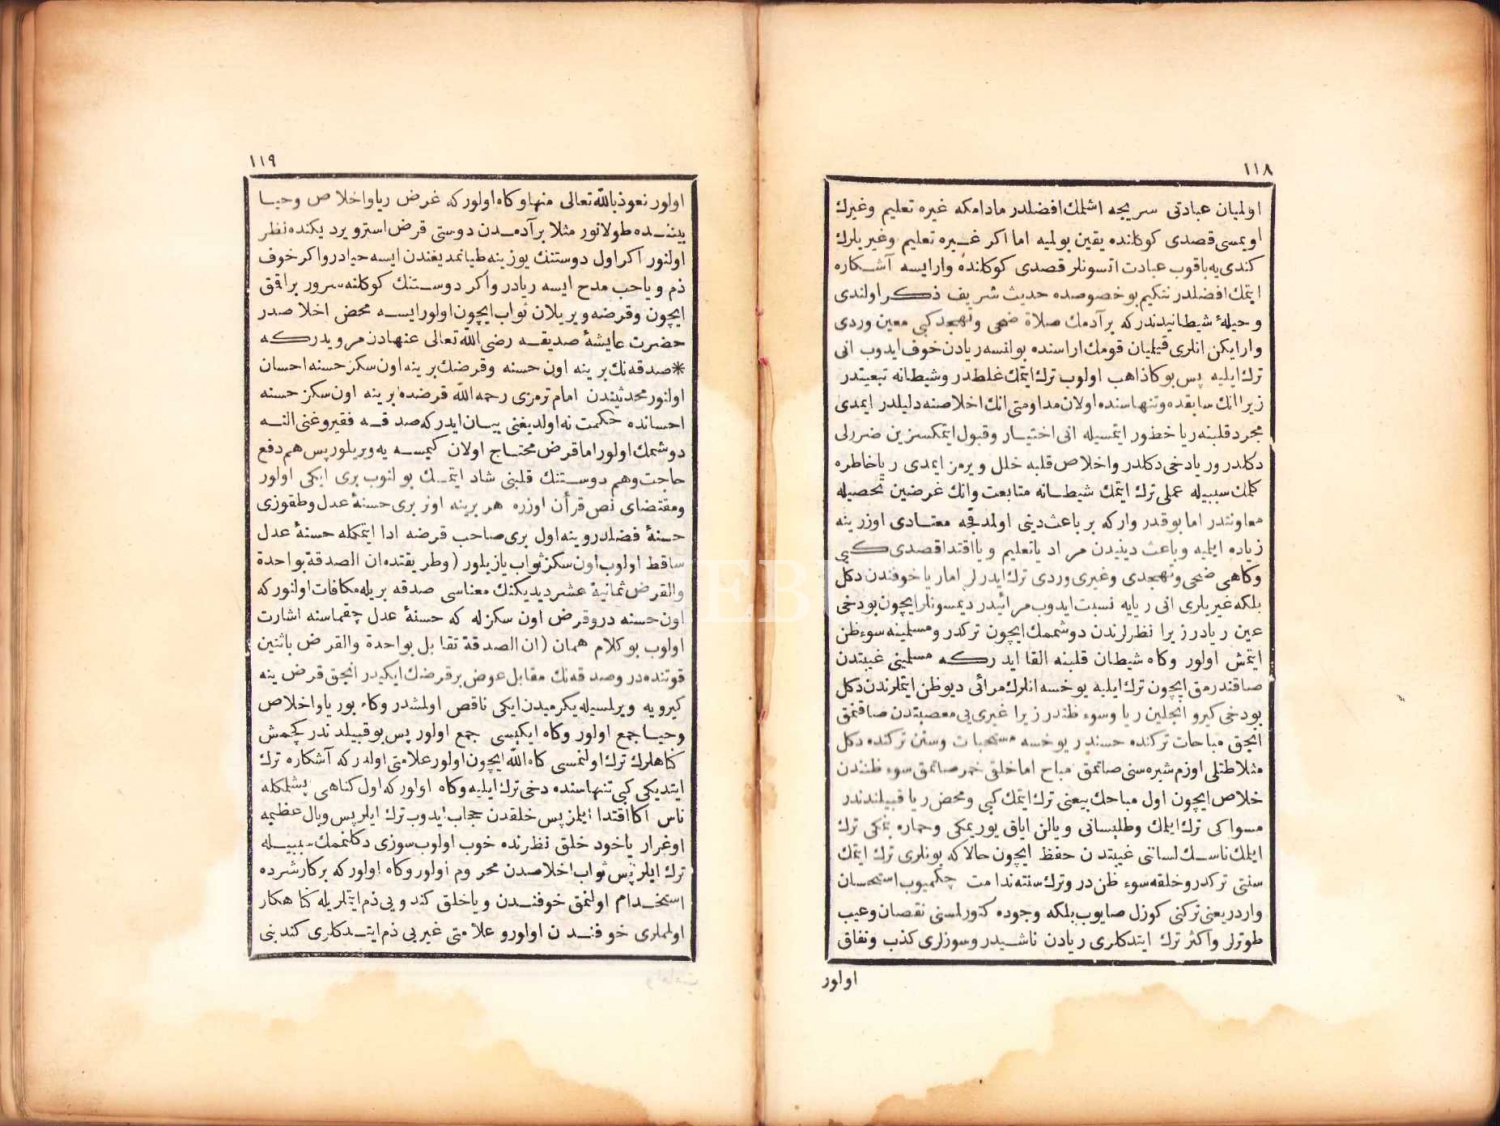 ١١٨
اولميان عبادتى سريجه اشلمك افضلدر مادامكه غيره تعليم وغيرك
اويمسى قصدى كوكلنده يقين بولميه اما اكر غيره تعليم وغيريلرك
كندى يه باقوب عبادت اتسونلر قصدى كوكلنده وارايسه آشكاره
ايتمك افضلدر نتكيم بو خصوصده حديث شريف ذكر اولندى
وحيلهٔ شيطانيدندر كه برآدمك صلاة ضحى وتهجد كبى معين وردى
وارايكن انلرى قيلميان قومك اراسنده بولنسه ريادن خوف ايدوب انى
ترك ايليه پس بوكا ذاهب اولوب ترك ايتمك غلطدر وشيطانه تبعيتدر
زيرا انك سابقده وتنهاسنده اولان مداومتى انك اخلاصنه دليلدر ايمدى
مجرد قلبنه ريا خطور ايتمسيله انى اختيار وقبول ايتمكسزين ضررلى
دكلدر وريا دخى دكلدر واخلاص قلبه خلل ويرمز ايمدى ريا خاطره
كلمك سببيله عملى ترك ايتمك شيطانه متابعت وانك غرضين تحصيله
معاونتدر اما بوقدر واركه بر باعث دينى اولمدقجه معتادى اوزرينه
زياده ايليه وباعث دينيدن مراد يا تعليم ويا اقتدا قصدى كبى
وكاهى ضحى وتهجدى وغيرى وردى ترك ايدرلر اما ريا خوفندن دكل
بلكه غيريلرى انى ريايه نسبت ايدوب مرائيدر ديمسونلر ايچون بودخى
عين ريادر زيرا نظرلرندن دوشممك ايچون تركدر ومسلمينه سوء ظن
ايتمش اولور وكاه شيطان قلبنه القا ايدركه مسلمينى غيبتدن
صاقندرمق ايچون ترك ايليه يوخسه انلرك مرائى ديو ظن ايتملرندن دكل
بودخى كيرو انجلين ريا وسوء ظندر زيرا غيرى يى معصيتدن صاقنمق
انجق مباحات تركنده حسندر يوخسه مستحبات وسنن تركنده دكل
مثلا طتلى اوزم شيره سنى صاتمق مباح اما خلقى خمر صاتمق سوء ظنندن
خلاص ايچون اول مباحك بيعنى ترك ايتمك كبى ومحض ريا قبيلندندر
مسواكى ترك ايلمك وطلبسانى ويالن اياق يوريمكى وحماره بنمكى ترك
ايلمك ناسك لسانى غيبتدن حفظ ايچون حالا كه بونلرى ترك ايتمك
سنتى تركدر وخلقه سوء ظندر وترك سنته ندامت چكميوب استحسان
واردر يعنى تركنى كوزل صايوب بلكه وجوده كتورلمسنى نقصان وعيب
طوترلر واكثر ترك ايتدكلرى ريادن ناشيدر وسوزلرى كذب ونفاق
اولور
١١٩
اولور نعوذ بالله تعالى منها وكاه اولور كه غرض ريا واخلاص وحيا
بيننده طولانور مثلا برآدمدن دوستى قرض استرو ير ديكنده نظر
اولنور اكر اول دوستنك يوزينه طيانمديغندن ايسه حيادر واكر خوف
ذم ويا حب مدح ايسه ريادر واكر دوستنك كوكلنه سرور براقق
ايچون وقرضه ويريلان ثواب ايچون اولورايسه محض اخلاصدر
حضرت عايشهٔ صديقه رضى الله تعالى عنهادن مرويدركه
*صدقه نك برينه اون حسنه وقرضك برينه اون سكز حسنه احسان
اولنور محدثيندن امام ترمزى رحمه الله قرضده برينه اون سكز حسنه
احسانده حكمت نه اولديغنى بيان ايدر كه صدقه فقير وغنى النه
دوشمك اولور اما قرض محتاج اولان كيمسه يه ويريلور پس هم دفع
حاجت وهم دوستنك قلبنى شاد ايتمك بولنوب برى ايكى اولور
ومقتضاى نص قرآن اوزره هر برينه اوز برى حسنهٔ عدل وطقوزى
حسنهٔ فضلدر وينه اول برى صاحب قرضه ادا ايتمكله حسنهٔ عدل
ساقط اولوب اون سكز ثواب يازيلور (وطريقتده ان الصدقة بواحدة
والقرض ثمانية عشر ديديكنك معناسى صدقه بريله مكافات اولنور كه
اون حسنه در وقرض اون سكزله كه حسنهٔ عدل چقماسنه اشارت
اولوب بوكلام همان (ان الصدقة تقابل بواحدة والقرض باثنين
قوتنده در وصدقه نك مقابل عوض بر قرضك ايكيدر انجق قرض ينه
كيرويه ويرلمسيله يكرميدن ايكى ناقص اولمشدر وكاه بوريا واخلاص
وحيا جمع اولور وكاه ايكيسى جمع اولور پس بو قبيلدندر كچمش
كناهلرك ترك اولنمسى كاه الله ايچون اولور علامتى اولدر كه آشكاره ترك
ايتديكى كبى تنهاسنده دخى ترك ايليه وكاه اولور كه اول كناهى ايشلمكله
ناس اكا اقتدا ايلمز پس خلقدن حجاب ايدوب ترك ايلر پس وبال عظيمه
اوغرار ياخود خلق نظرنده خوب اولوب سوزى دكلنمك سببيله
ترك ايلر پس ثواب اخلاصدن محروم اولور وكاه اولور كه بركار شرده
استخدام اولنمق خوفندن ويا خلق كندويى ذم ايتملريله كناهكار
اولملرى خوفندن اولور وعلامتى غيريى ذم ايتدكلرى كندينى